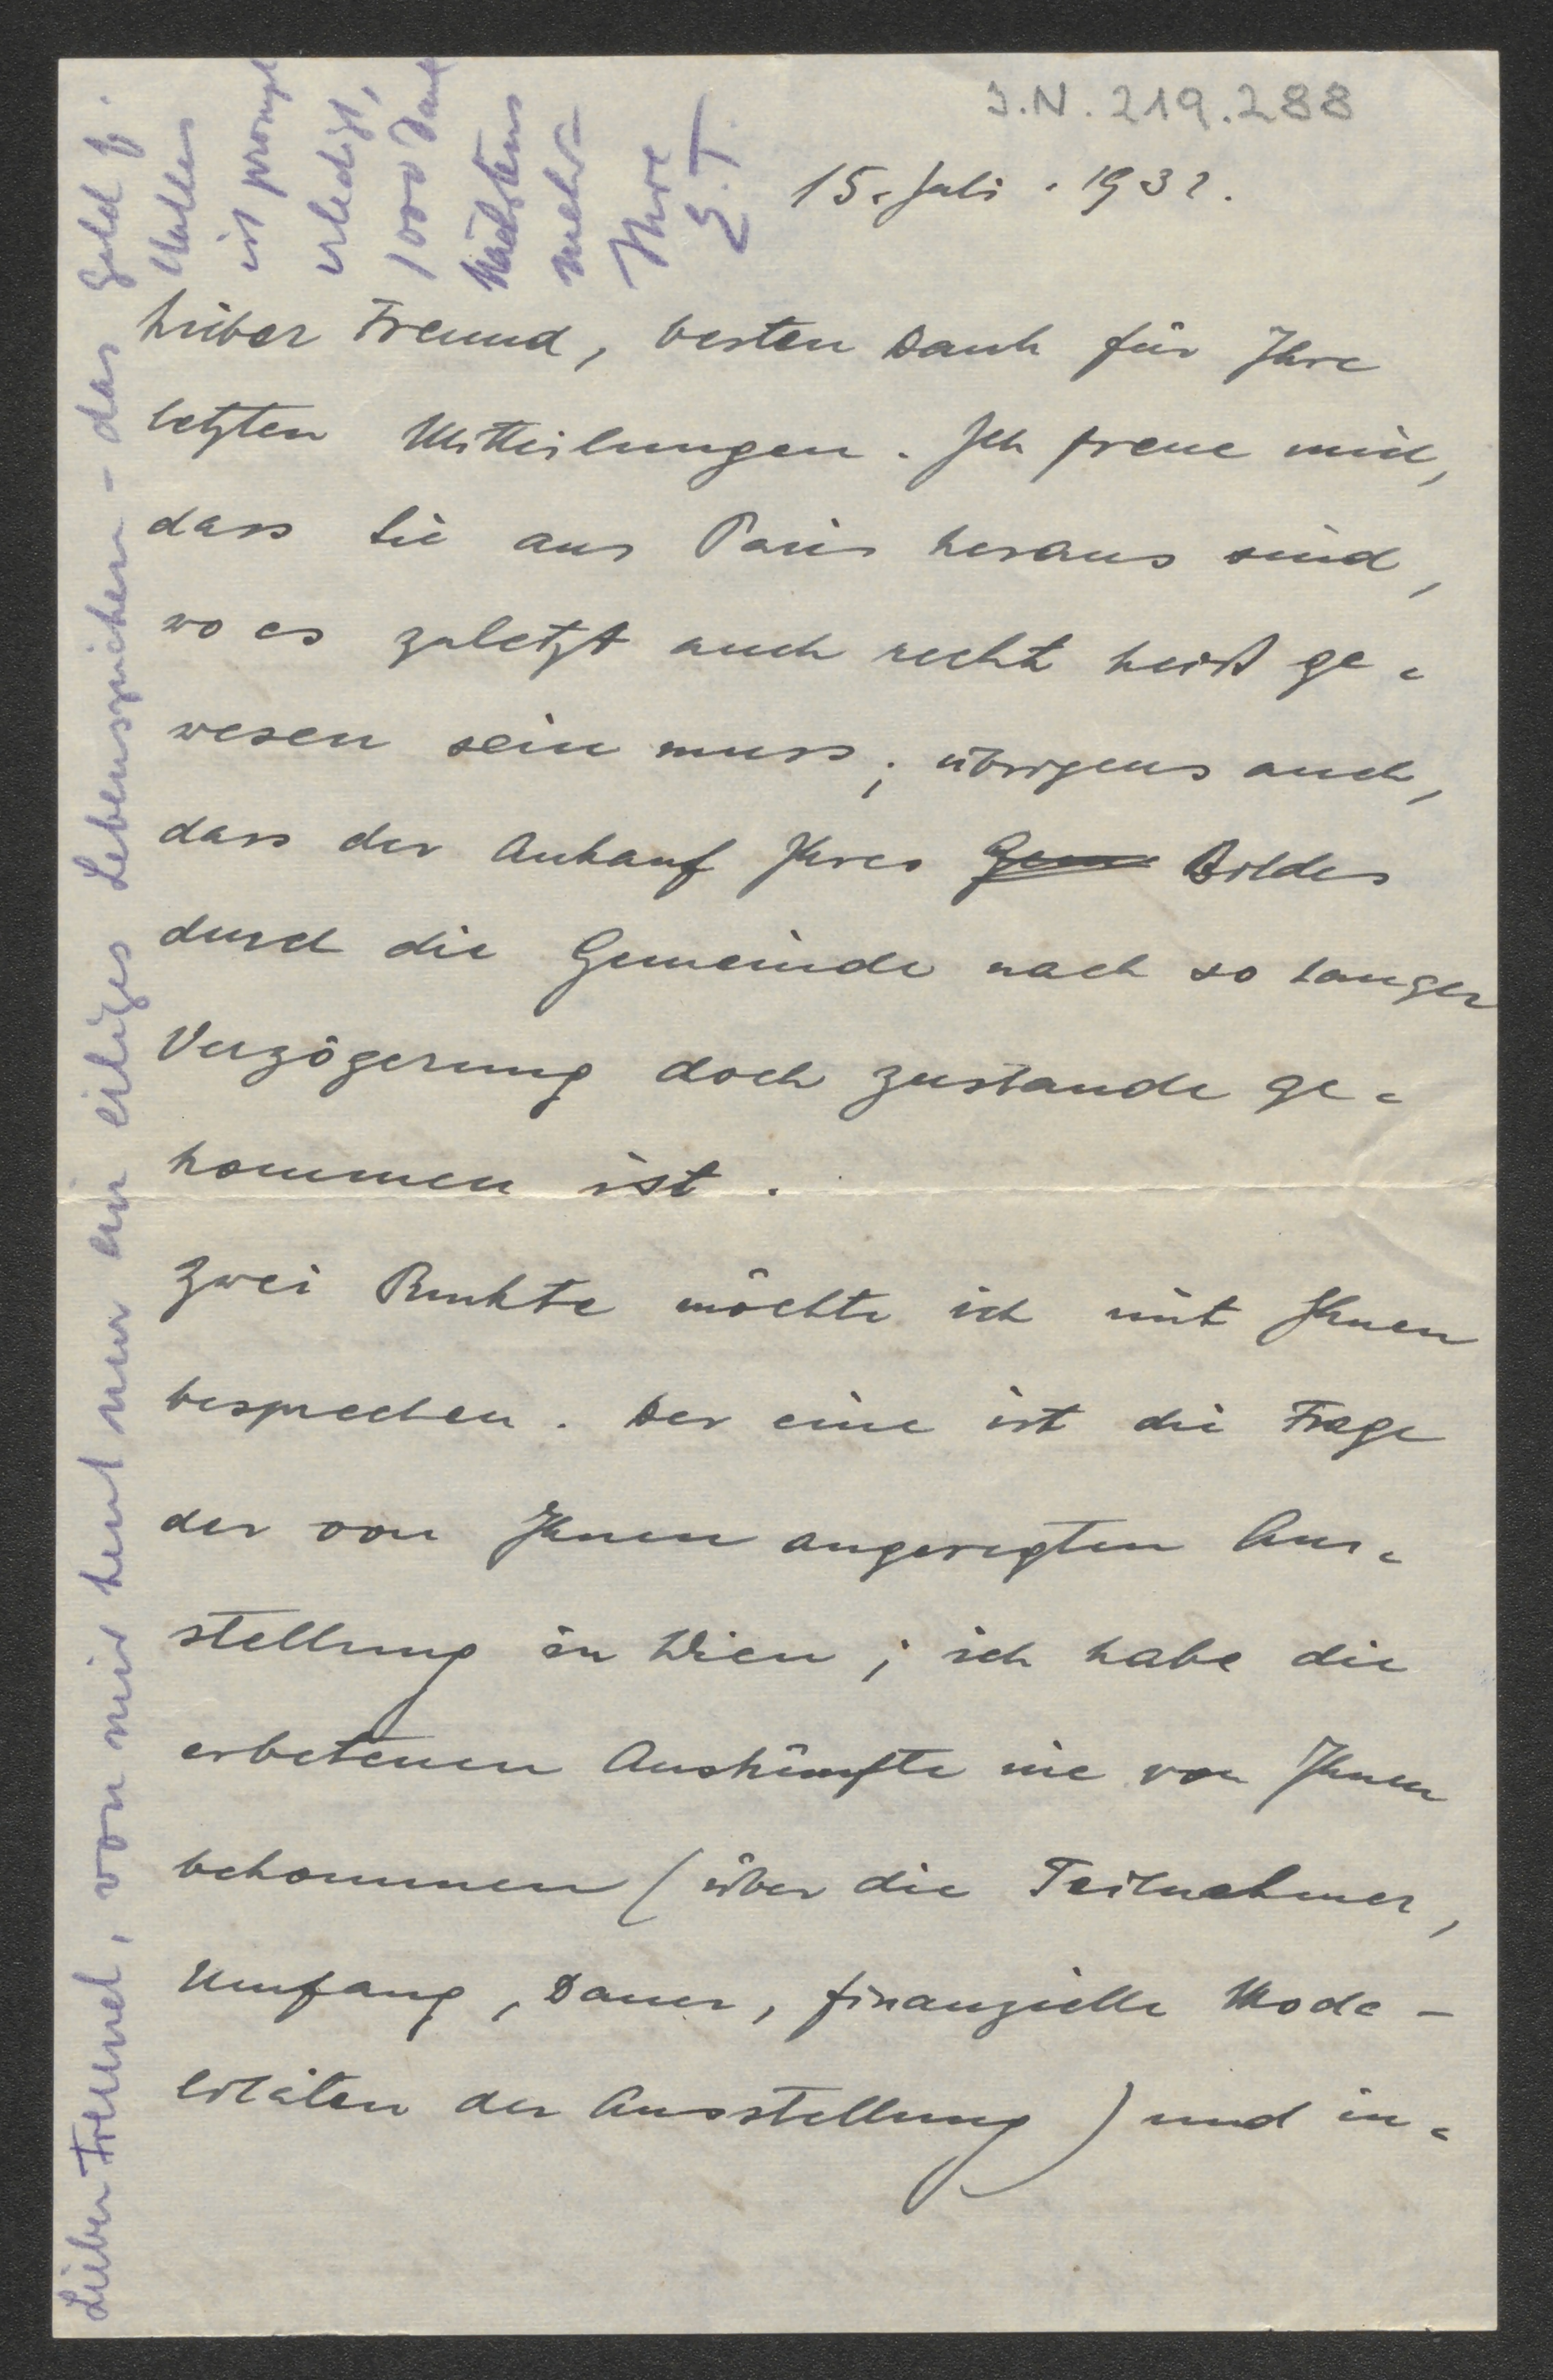 J.N. 219.288
15. Juli . 1932.
Lieber Freund, besten Dank für Ihre
letzten Mitteilungen. Ich freue mich,
dass Sie aus Paris heraus sind,
wo es zuletzt auch recht heiß ge-
wesen sein muss; übrigens auch,
dass der Ankauf Ihres Gem Bildes
durch die Gemeinde nach so langer
Verzögerung doch zustande ge-
kommen ist.
Zwei Punkte möchte ich mit Ihnen
besprechen. Der eine ist die Frage
der von Ihnen angeregten Aus-
stellung in Wien; ich habe die
erbetenen Auskünfte nie von Ihnen
bekommen (über die Teilnehmer,
Umfang, Dauer, finanzielle Moda-
litäten der Ausstellung) und in-
Lieber Freund, von mir heut nur ein eiliges Lebenszeichen - das Geld f.
ist prompt
erledigt,
1000 Dank
Nächstens
mehr
Ihre
E.T.